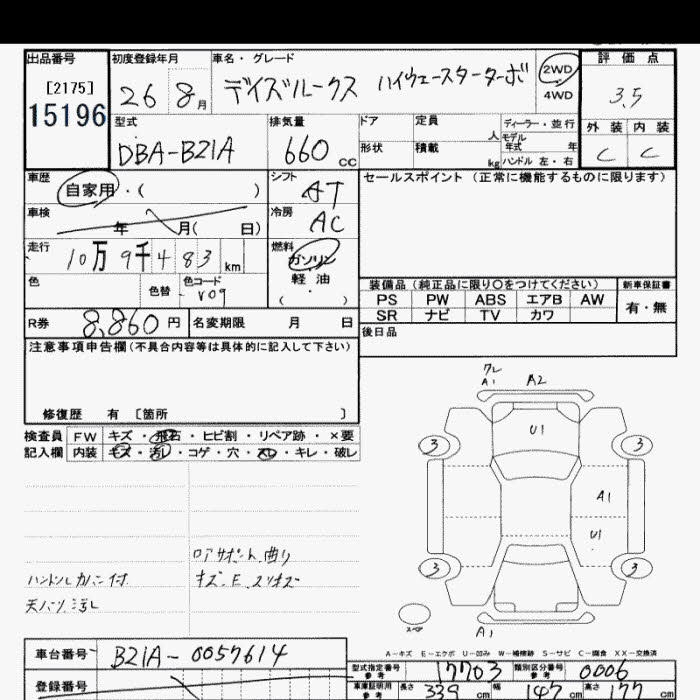 出品番号 初度登録年月 車名・グレード 評価点
[2175] 26 8月 デイズルークス ハイウェースターターボ 2WD 3.5
15196 4WD
外装 内装
型式 排気量 ドア 定員 ディーラー・並行
人 モデル年式 年
DBA-B21A 660cc 形状 積載 kg ハンドル 左・右 C C
車歴 シフト セールスポイント (正常に機能するものに限ります)
自家用・( ) AT
車検 冷房
年 月( 日) AC
走行 燃料
10万9千483km ガソリン
色 色替 色コード 軽油
V09 ( )
装備品 (純正品に限り○をつけてください) 新車保証書
PS PW ABS エアB AW 有・無
SR ナビ TV カワ
R券 8,860円 名変期限 月 日 後日品
注意事項申告欄(不具合内容等は具体的に記入して下さい)
修復歴 有 [箇所 ]
検査員 FW キズ・飛石・ヒビ割・リペア跡・×要
記入欄 内装 キズ・汚レ・コゲ・穴・スレ・キレ・破レ
A1 A2
U1
3 3
A1
U1
3 3
スペア
A1
ロアサポート曲り
ハンドルカバー付 キズ.E.スリキズ
天バリ汚レ
A-キズ E-エクボ U-凹み W-補修跡 S-サビ C-腐食 XX-交換済
車台番号 B21A-0057614
型式指定番号 参考 17703 類別区分番号 参考 0006
登録番号
車庫証明用 参考 長さ 339cm 幅 147cm 高さ 177cm